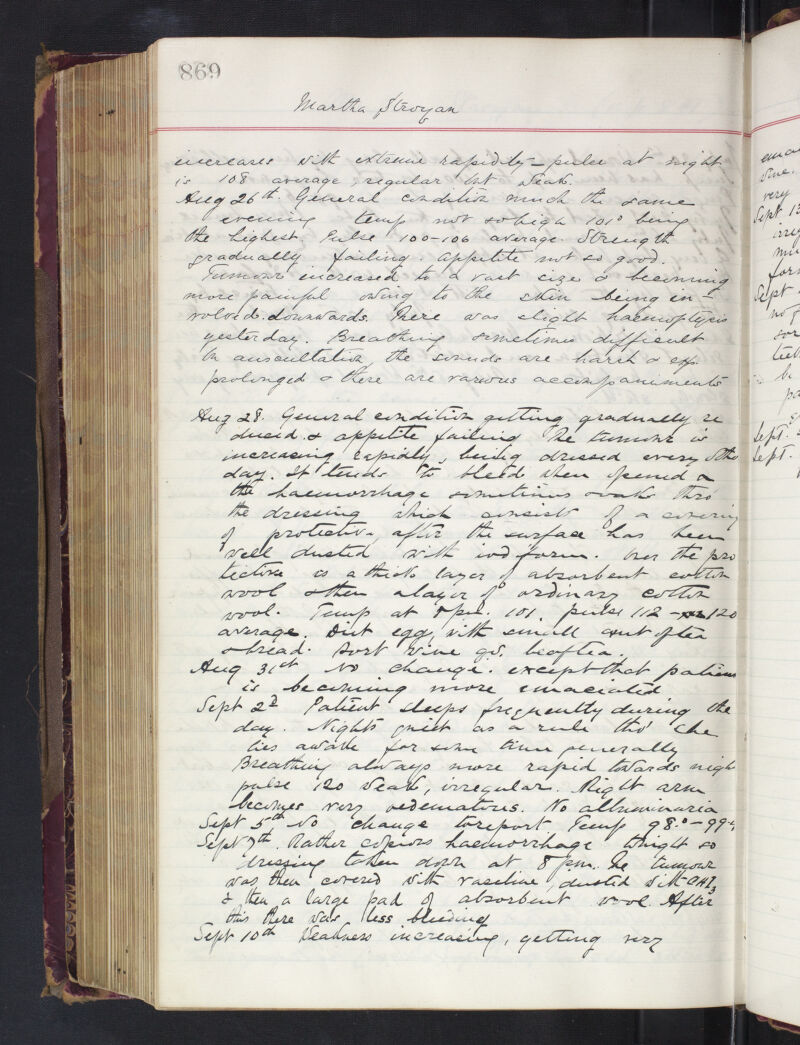 869
Martha Stroyan
increases with extreme rapidity – pulse at night
is 108 average, regular but weak.
Aug 26th. General condition much the same
evening temp not so high 101° being
the highest. Pulse 100-106 average. Strength
gradually failing. Appetite not so good.
Tumour increased to a vast size & becoming
more painful owing to the skin being in-
volved downwards. There was slight haemoptysis
yesterday. Breathing sometimes difficult
On auscultation, the sounds are harsh & exp
prolonged & there are various accompaniments
Aug 28. General condition getting gradually re
duced & appetite failing The tumour is
increasing rapidly, being dressed every other
day. It tends to bleed when opened &
the haemorrhage sometimes soaks thro'
the dressing which consists of a covering
of protective, after the surface has been
well dusted with iodoform. Over the pro
tective is a thick layer of absorbent cotton
wool & then a layer of ordinary cotton
wool. Temp at 101. pulse 112 - 120
average. Diet egg, with small of tea
& bread. Port wine beeftea.
Aug 31st No change. except that patient
is becoming more emaciated.
Sept 2d Patient sleeps frequently during the
day. Nights quiet as a rule tho' she
lies awake for some time generally
Breathing always more rapid towards night
pulse 120 weak, irregular. Right arm
becomes very oedematous. No albuminaria
Sept 5th No change to report Temp 98.° - 99.4
Sept 7th. Rather copious haemorrhage tonight so
dressing taken down at 8 pm. The tumour
was then covered with vaseline, dusted with CHI3
& then a large pad of absorbent wool. After
this there was less bleeding
Sept 10th Weakness increasing, getting very
very
Sept. 13
Sept
Sept.
Sept.